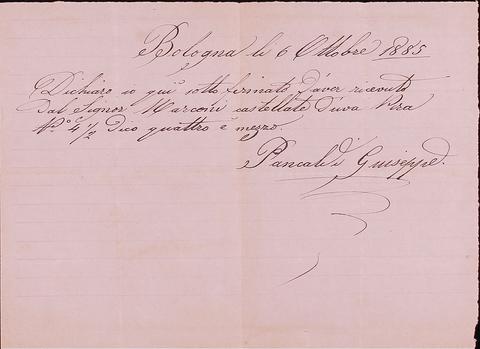 Bologna li 6 Ottobre 1885
Dichiaro io quì sotto firmato d'aver ricevuto
dal Signor Marconi castellate d'uva Nera
N.o 4 1/2 dico quattro e mezzo.
Pancaldi Guiseppe.